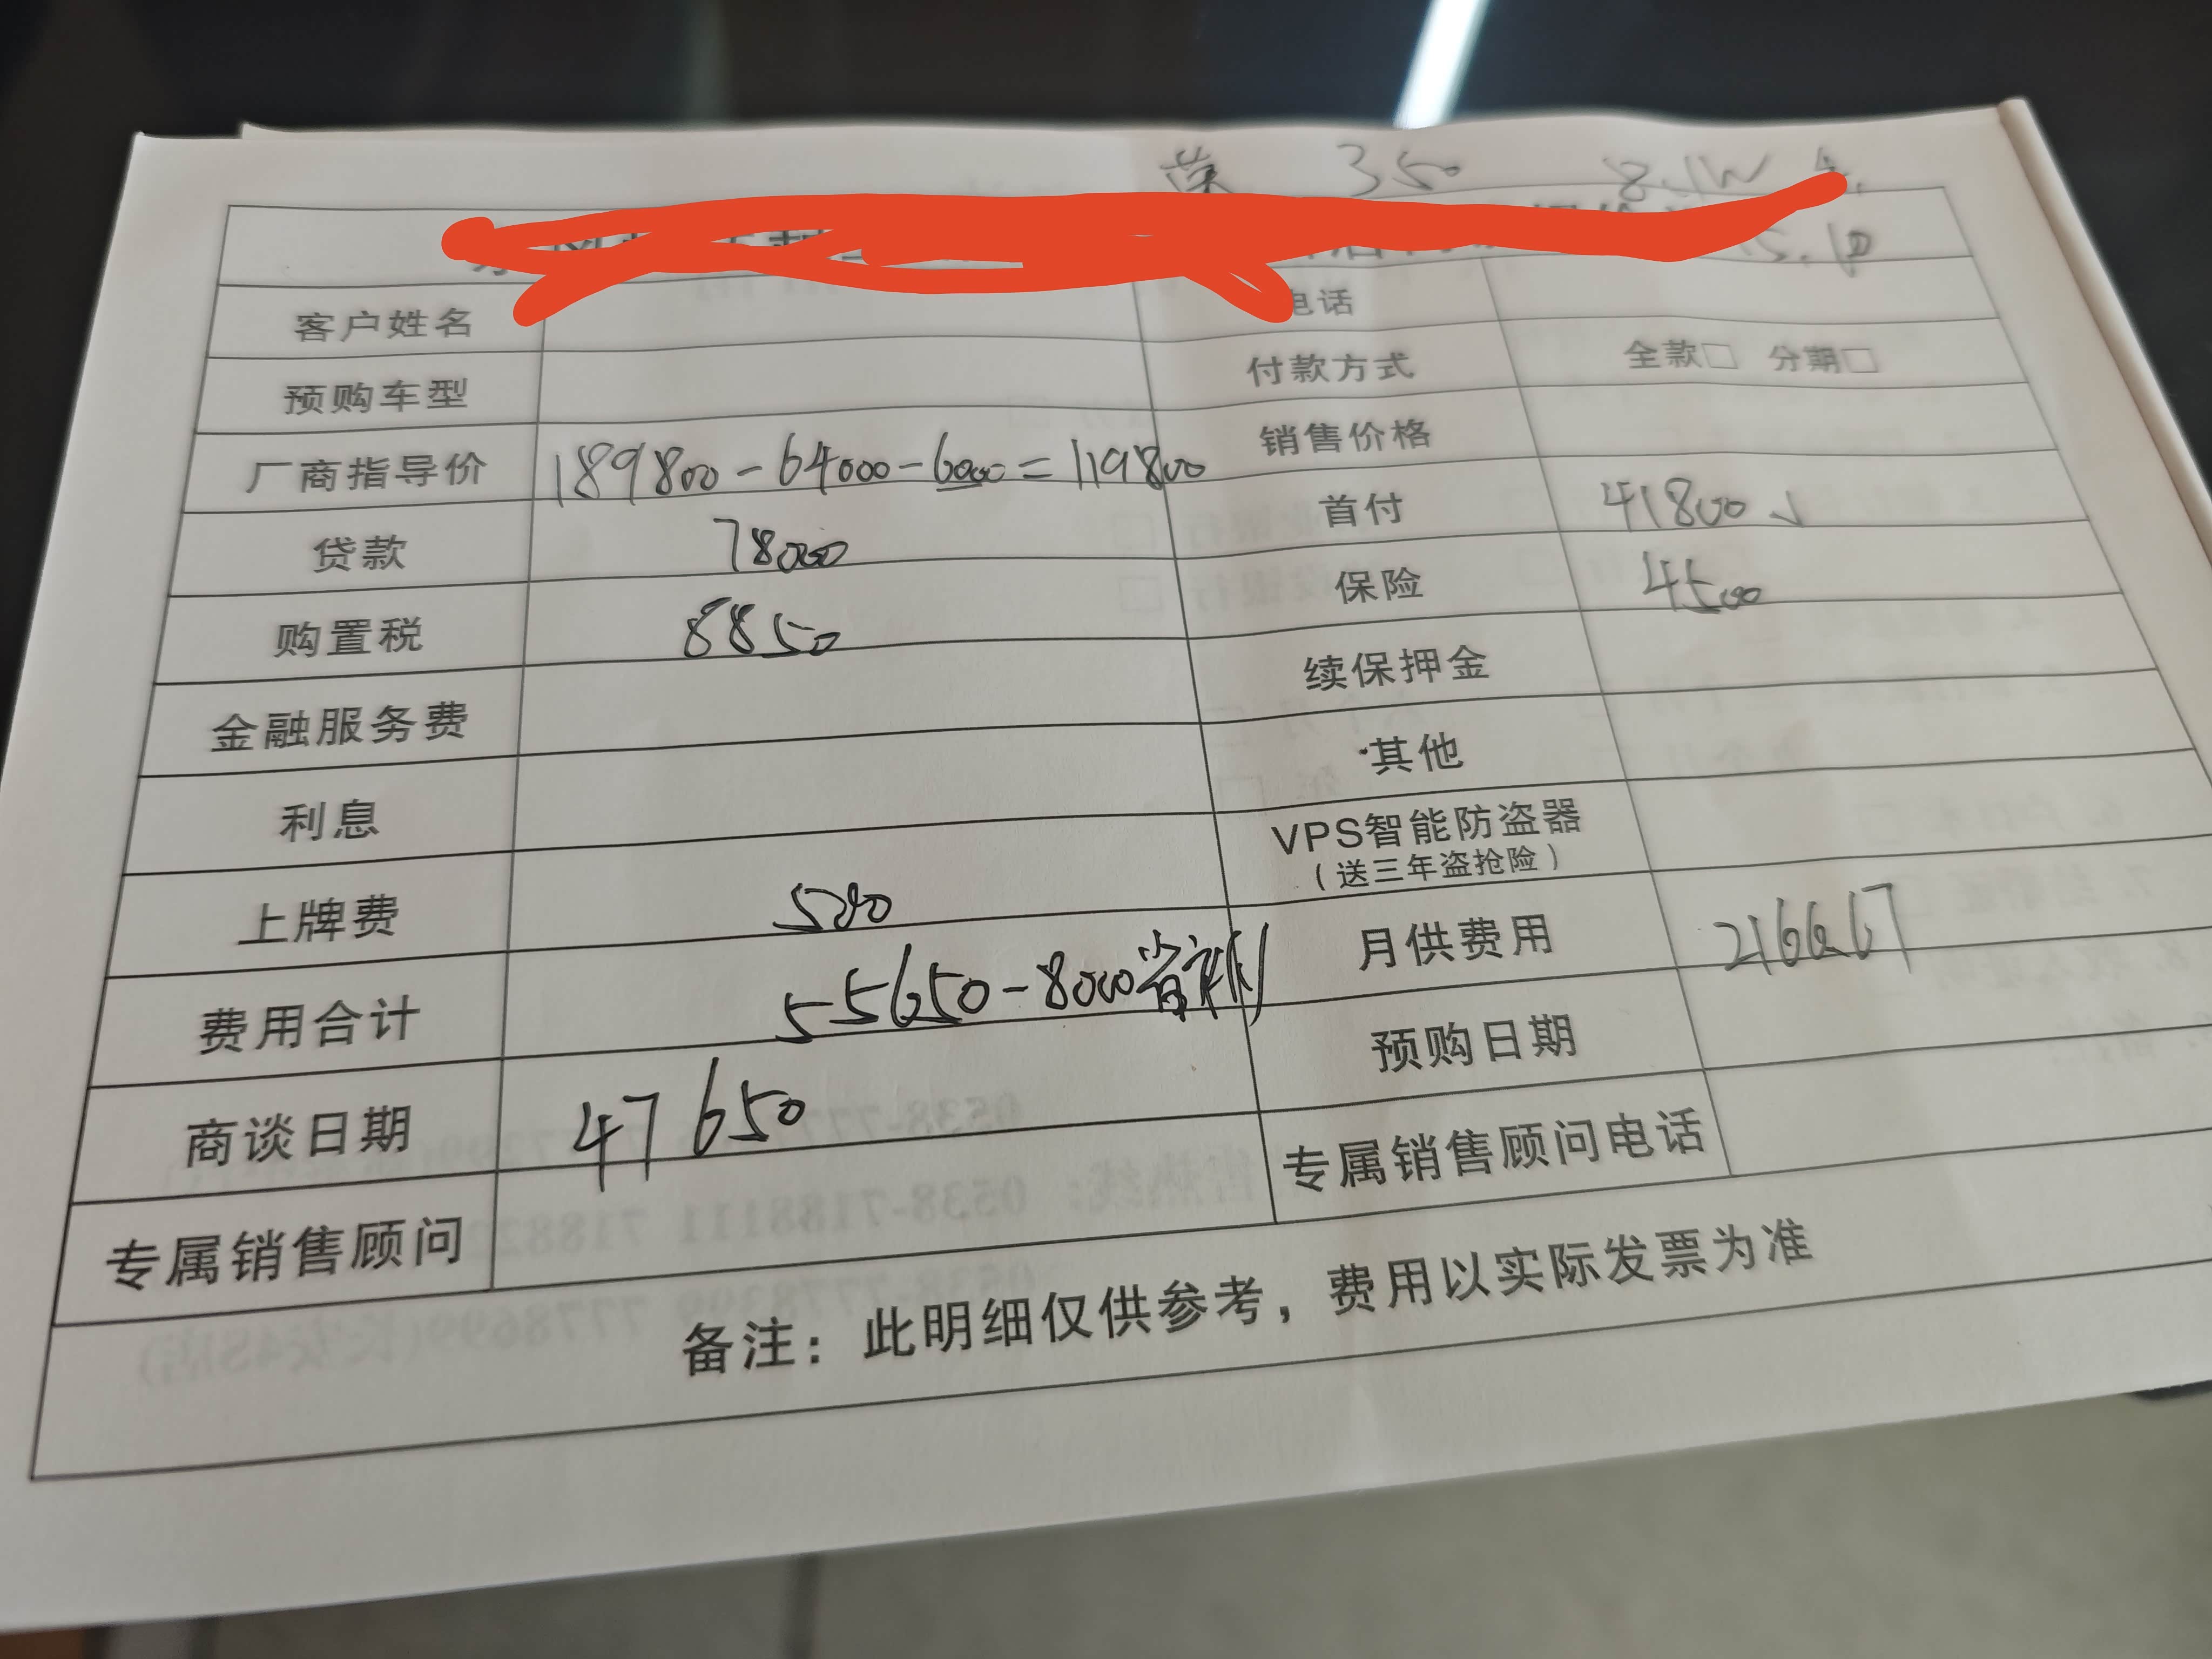 荣 350 8.1W
客户姓名 电话
预购车型 付款方式 全款□ 分期□
厂商指导价 189800-64000-6000=119800 销售价格
贷款 78000 首付 41800
购置税 8850 保险 4500
金融服务费 续保押金
利息 其他
VPS智能防盗器
(送三年盗抢险)
上牌费 500 月供费用 2166.67
费用合计 55650-8000 预购日期
商谈日期 47650 专属销售顾问电话
专属销售顾问
备注：此明细仅供参考，费用以实际发票为准